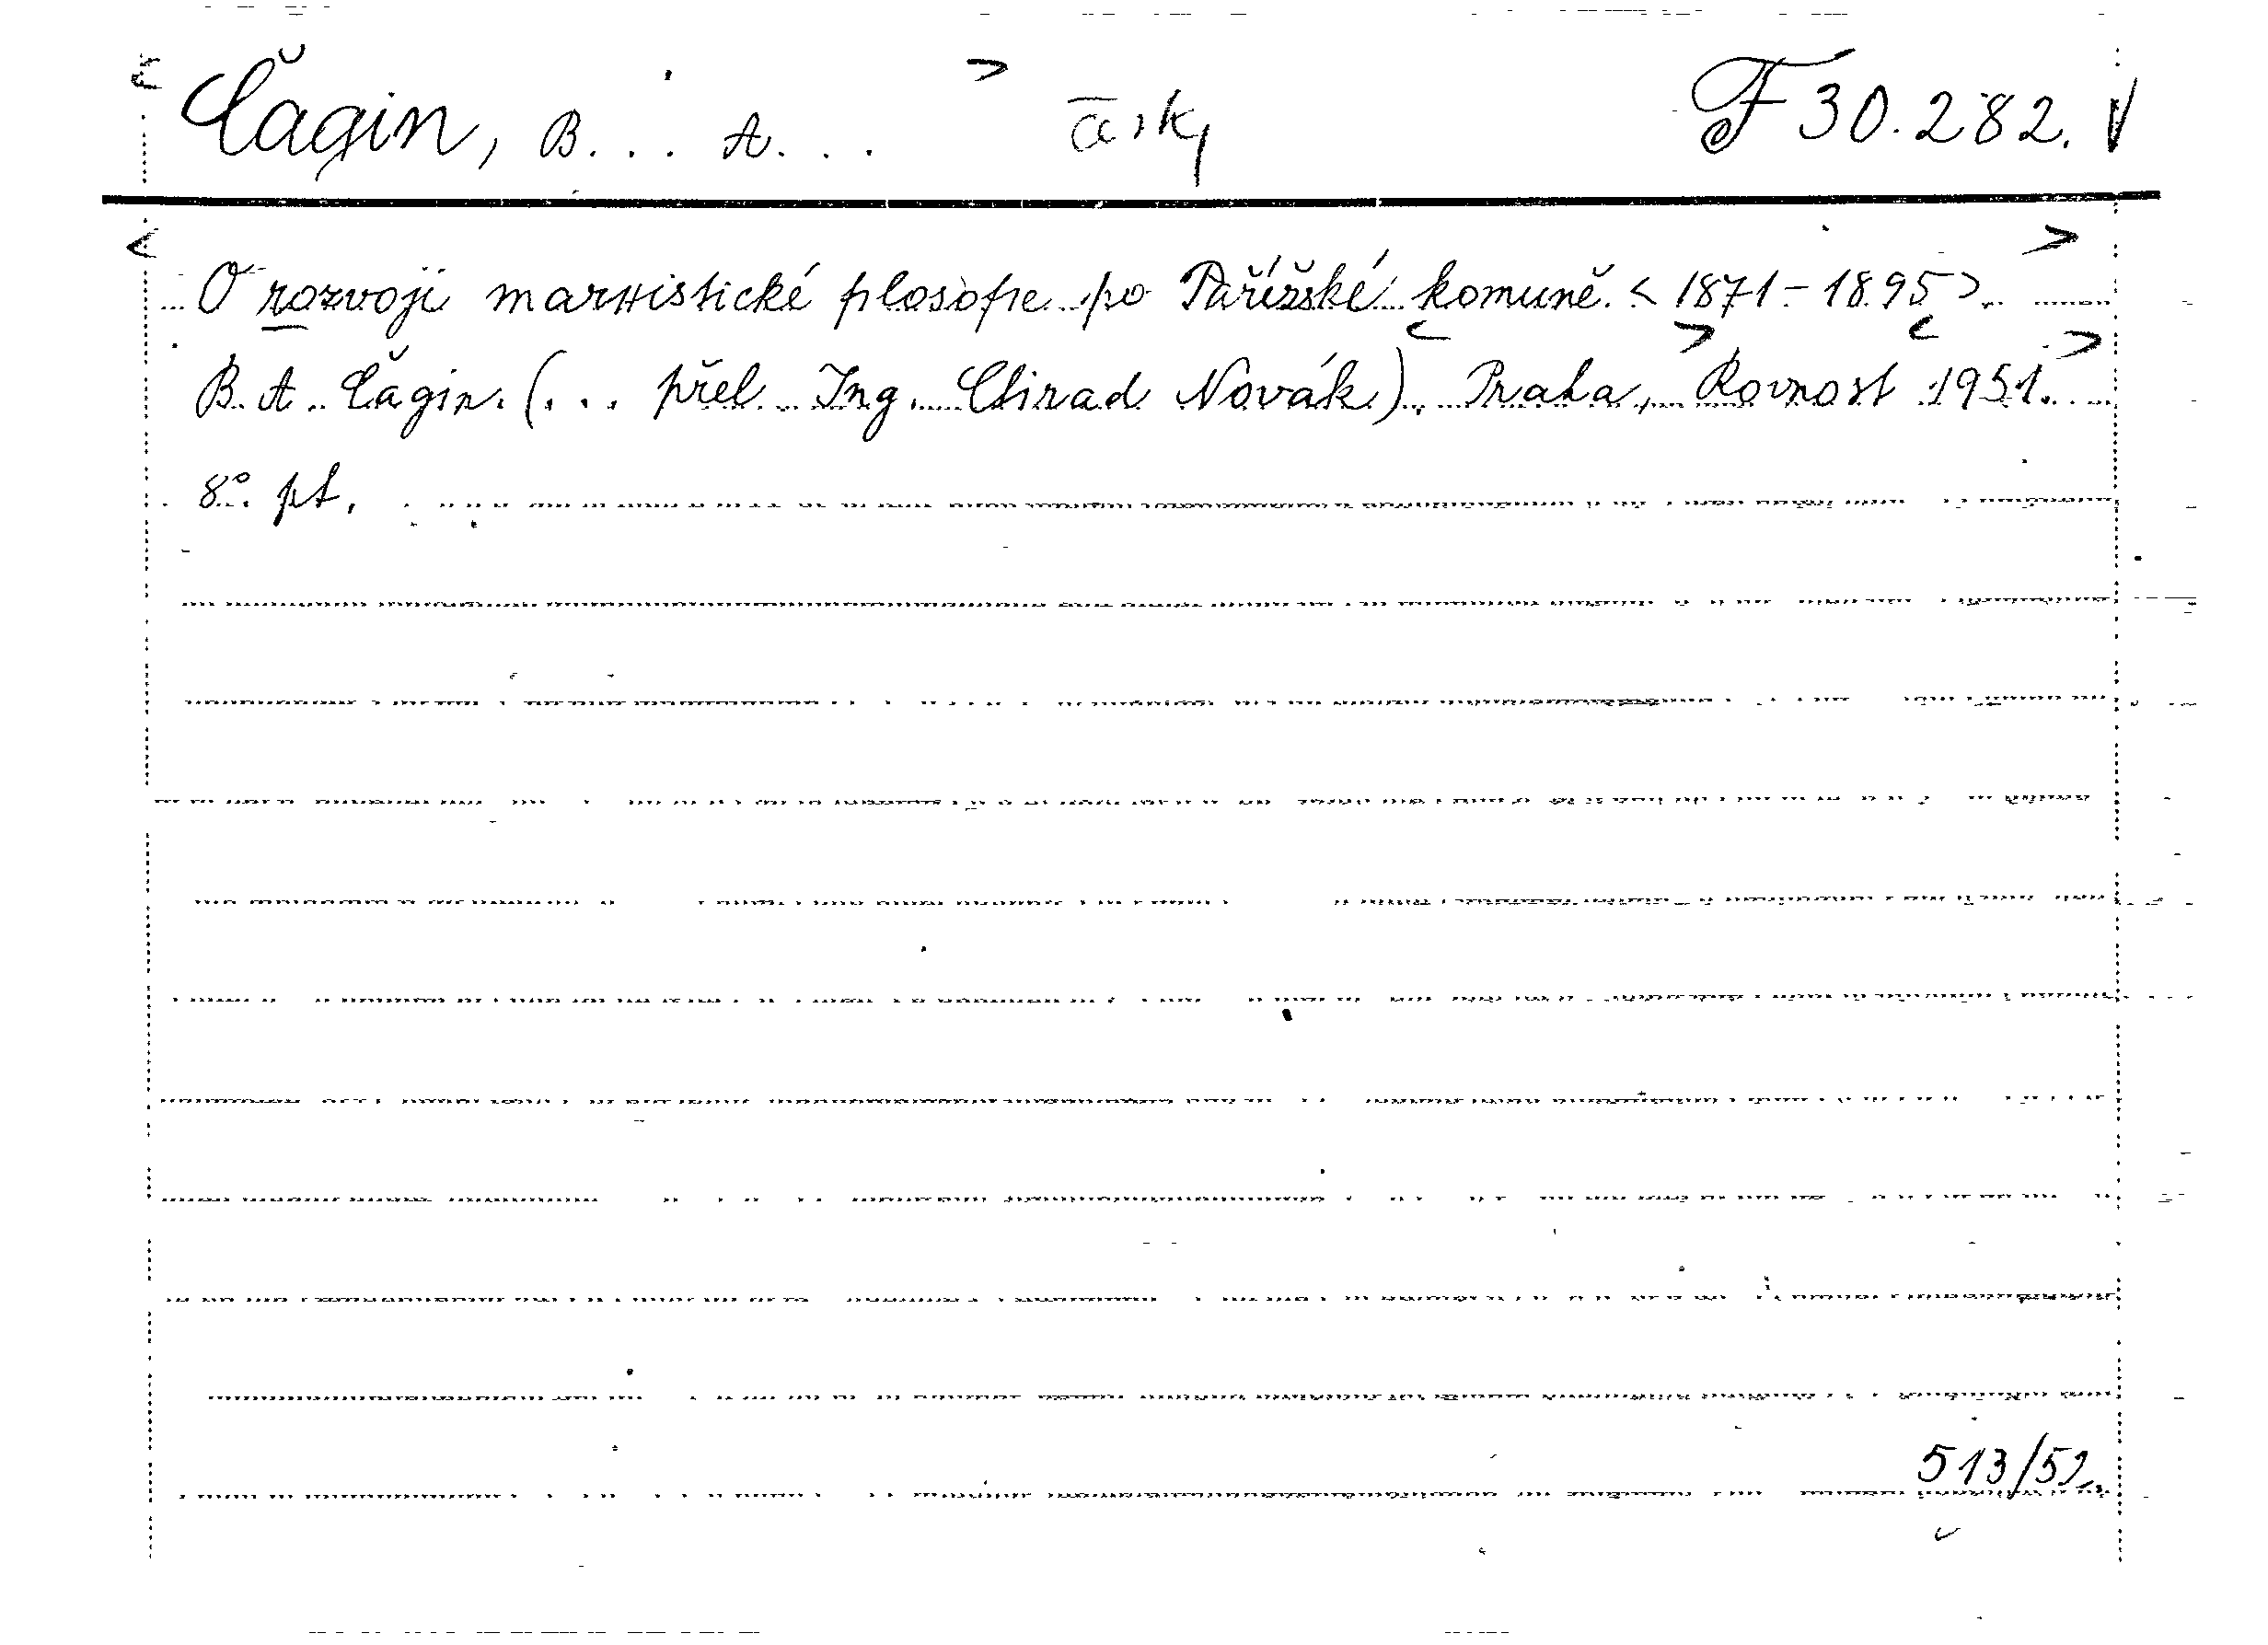 Čagin, B... A... česky F 30.282.
O rozvoji marxistické filosofie po Pařížské komuně. <1871-1895>.
B. A. Čagin. (... přel. Ing. Ctirad Novák). Praha, Rovnost 1951.
8°. pt.
513/52.